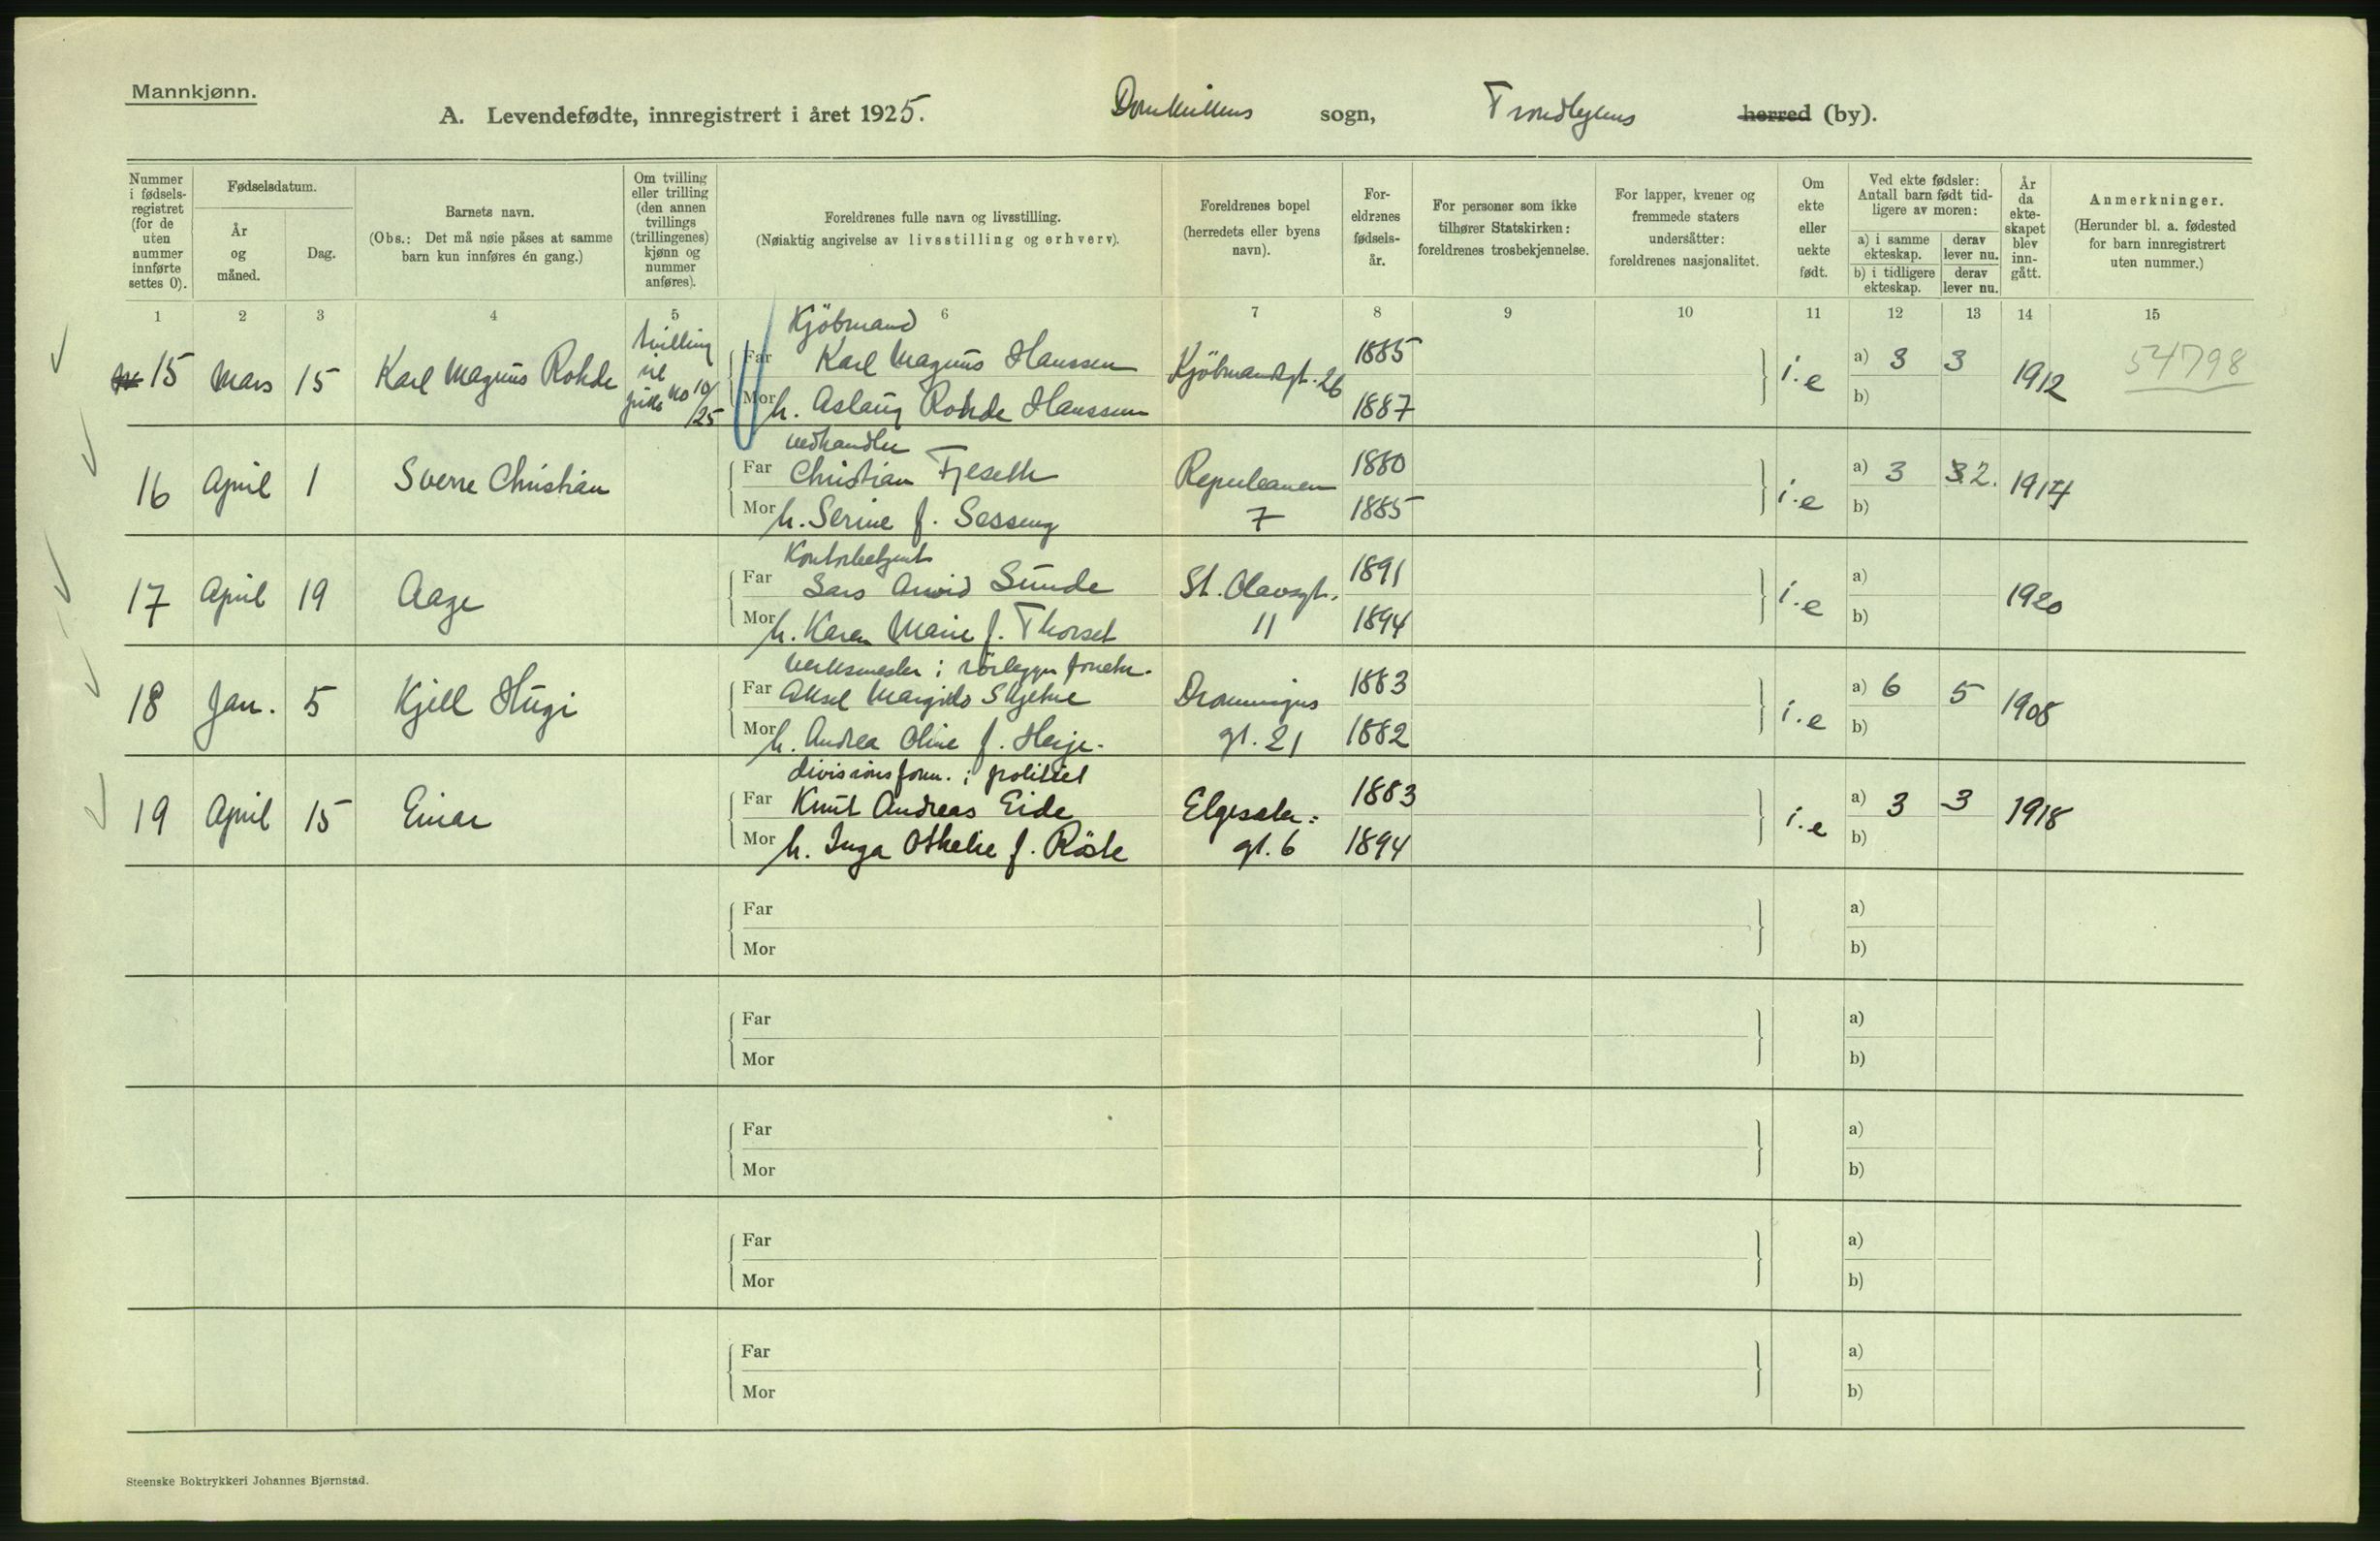 Mannkjønn.
A. Levendefødte, innregistrert i året 1925. Domkirkens sogn, Trondhjems herred (by).
Nummer i fødselsregistret (for de uten nummer innførte settes 0).
Fødselsdatum.
År og måned.
Dag.
Barnets navn.
(Obs.: Det må nøie påses at samme barn kun innføres én gang.)
Om tvilling eller trilling (den annen tvillings (trillingenes) kjønn og nummer anføres).
Foreldrenes fulle navn og livsstilling.
(Nøiaktig angivelse av livsstilling og erhverv).
Foreldrenes bopel (herredets eller byens navn).
Foreldrenes fødselsår.
For personer som ikke tilhører Statskirken: foreldrenes trosbekjennelse.
For lapper, kvener og fremmede staters undersåtter: foreldrenes nasjonalitet.
Om ekte eller uekte født.
Ved ekte fødsler: Antall barn født tidligere av moren:
a) i samme ekteskap. derav lever nu.
b) i tidligere ekteskap. derav lever nu.
År da ekteskapet blev inngått.
Anmerkninger.
(Herunder bl. a. fødested for barn innregistrert uten nummer.)
1 2 3 4 5 6 7 8 9 10 11 12 13 14 15
Kjöbmand
15 Mars 15 Karl Magnus Rohde tvilling til pike No 10/25 Far Karl Magnus Hanssen Kjöbmandsgt. 26 1885 i.e a) 3 3 1912 54798
Mor h. Aslaug Rohde Hanssen 1887 b)
vedhandler
16 April 1 Sverre Christian Far Christian Fjeseth Repslageren 1880 i.e a) 3 3 2. 1914
Mor h. Serine f. Sesseng 7 1885 b)
Kontorbetjent
17 April 19 Aage Far Lars Arvid Sunde St. Olavsgt. 1891 i.e a) 1920
Mor h. Karen Marie f. Thorset 11 1894 b)
Verksmester i rörlegger forretn.
18 Jan. 5 Kjell Hugi Far Aksel Margido Skjetne Dronningens 1883 i.e a) 6 5 1908
Mor h. Andrea Oline f. Heije. gt. 21 1882 b)
divisionsform. i politiet
19 April 15 Einar Far Knut Andreas Eide Elgesæter= 1883 i.e a) 3 3 1918
Mor h. Inga Othelie f. Röste gt. 6 1894 b)
Far a)
Mor b)
Far a)
Mor b)
Far a)
Mor b)
Far a)
Mor b)
Far a)
Mor b)
Steenske Boktrykkeri Johannes Bjørnstad.